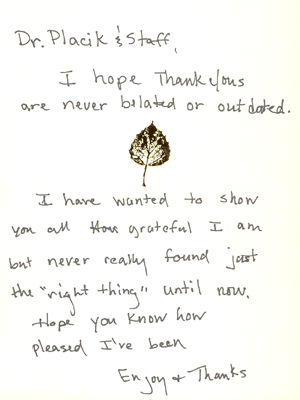 Dr. Placik & Staff,
I hope Thank yous
are never bilated or outdated.
I have wanted to show
you all how grateful I am
but never really found just
the "right thing" until now.
Hope you know how
pleased I've been
Enjoy + Thanks